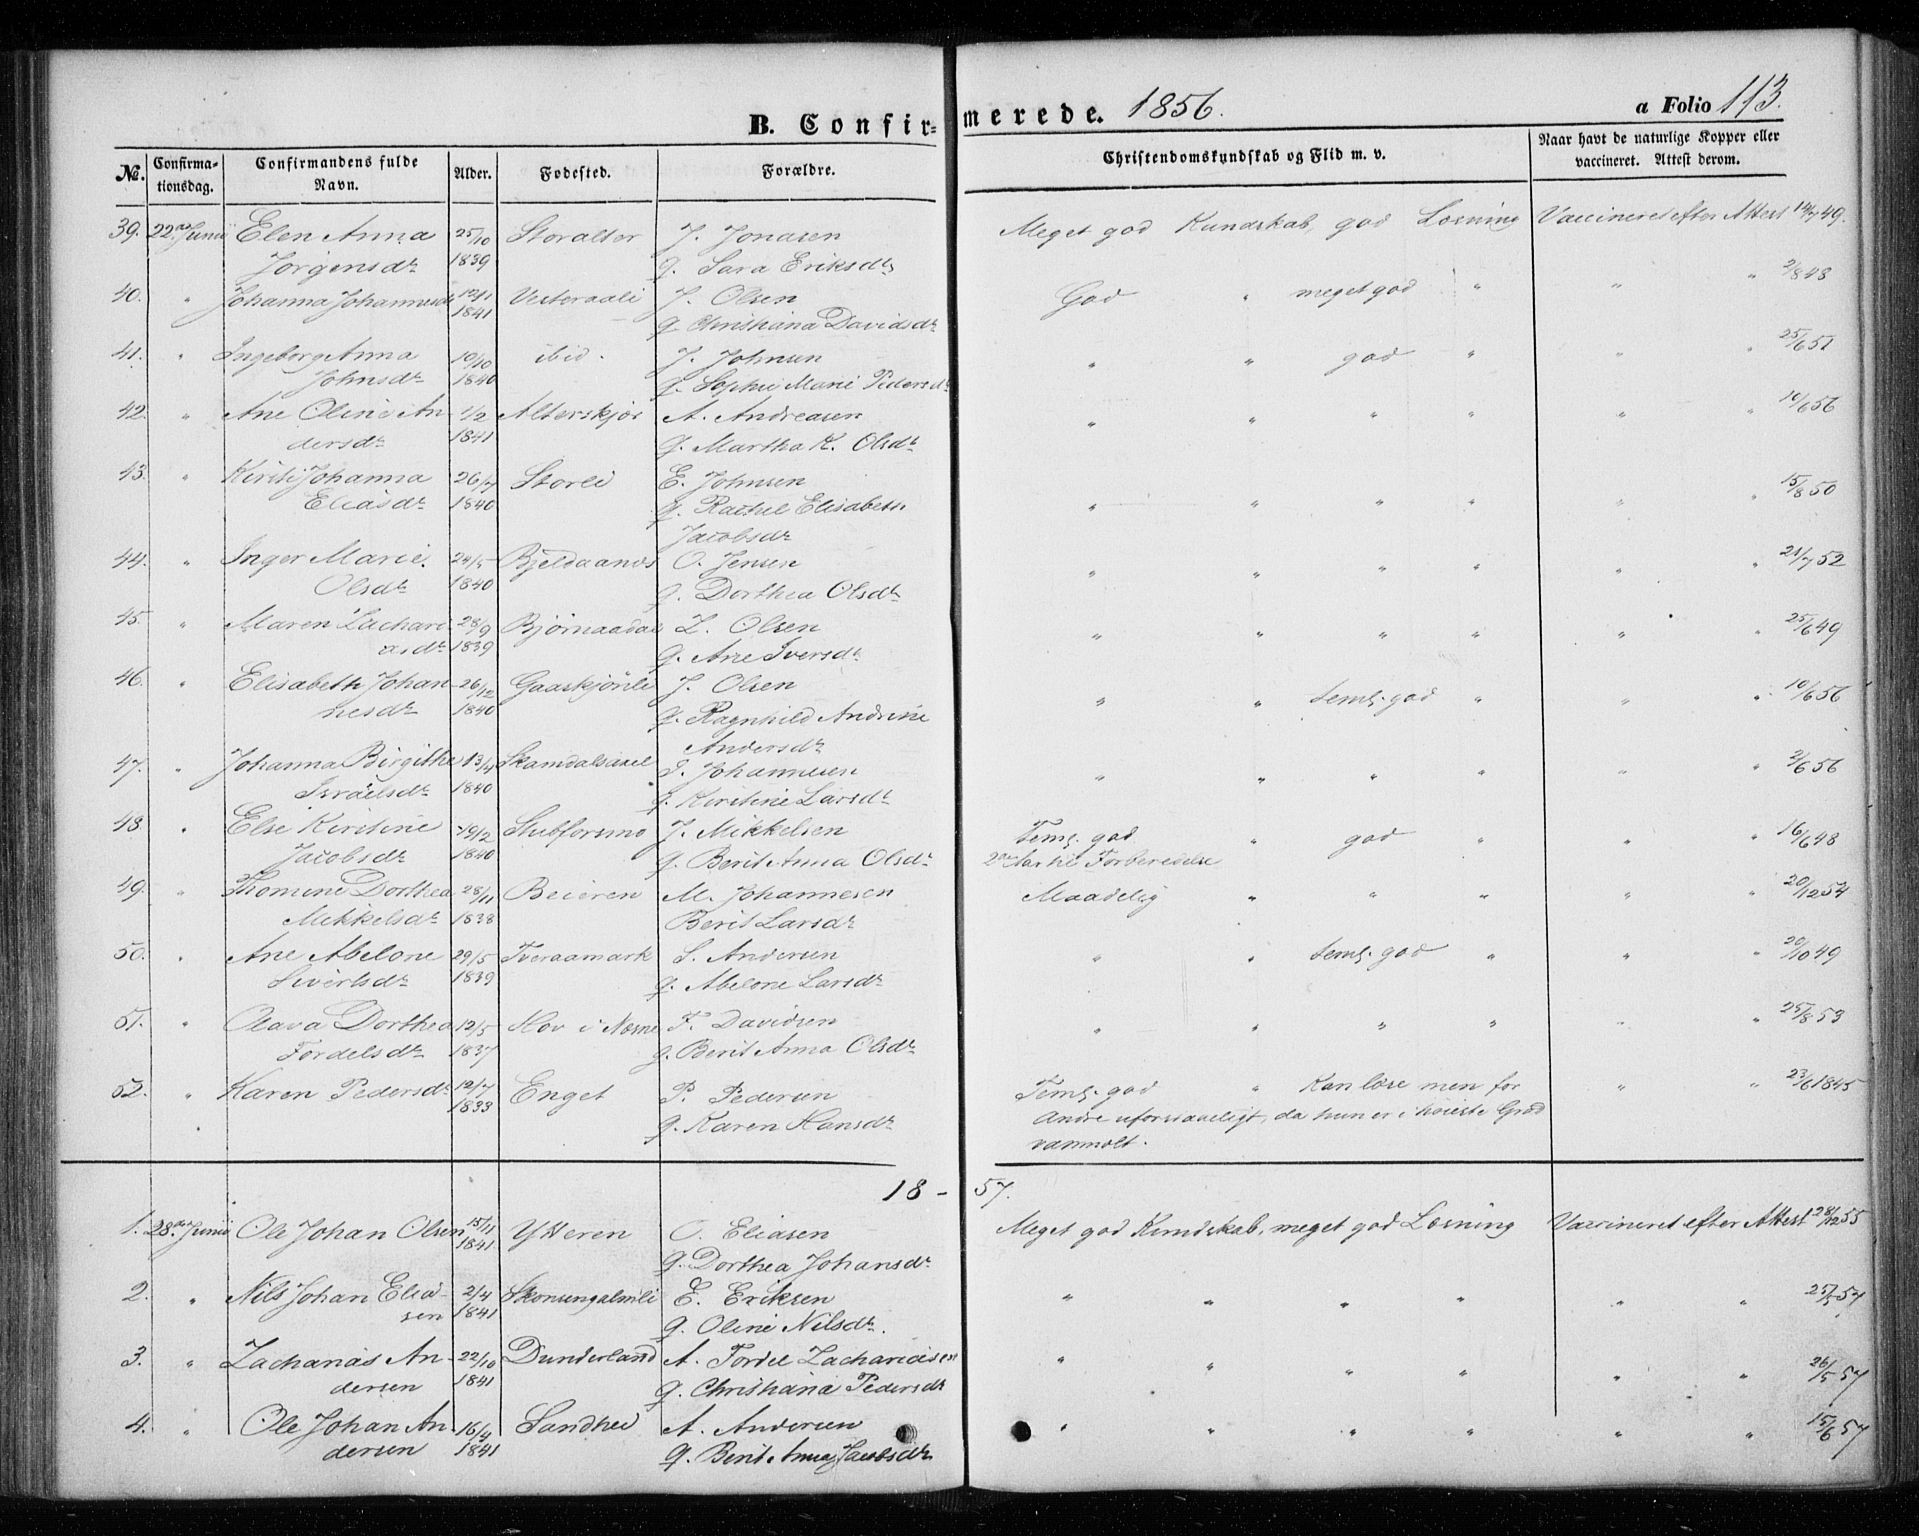 B. Confirmerede. 1856. a Folio 113.
No. Confirmationsdag. Confirmandens fulde Navn. Alder. Fødested. Forældre. Christendomskundskab og Flid m. v. Naar havt de naturlige Kopper eller vaccineret. Attest derom.
39. 22de Junii Elen Anna 25/10 Storalter J. Jonasen Meget god Kundskab, god Læsning Vaccineret efter Attest 14/7 49.
Jørgensdr 1839 q. Sara Eriksdr
40. " Johanna Johannesdr 12/11 Vesteraali J. Olsen God " meget god " " " 2/8 48
1841 q. Christiana Davidsdr
41. " Ingeborg Anna 10/10 ibid. J. Johnsen " " god " " " 25/6 51
Johnsdr 1840 q. Sophie Marie Pedersdr
42. " Ane Oline An- 1/2 Alterskjær A. Andreasen " " " " " " 10/6 56
dersdr 1841 q. Martha K. Olsdr
43. " Kirsti Johanna 26/7 Storli E. Johnsen " " " " " " 15/8 50
Eliasdr 1840 q. Rachel Elisabeth
Jacobsdr
44. " Inger Marie 24/5 Bjeldaanes O. Jensen " " " " " " 21/7 52
Olsdr 1840 q. Dorthea Olsdr
45. " Maren Zachari- 28/9 Bjørnaadal Z. Olsen " " " " " " 25/6 49
asdr 1839 q. Ane Iversdr
46. " Elisabeth Johan- 26/12 Gaaskjønli J. Olsen " " teml. god " " " 10/6 56
nesdr 1840 q. Ragnhild Andrine
Andersdr
47. " Johanna Birgithe 13/4 Skamdalsaxel I. Johannesen " " " " " " 2/6 56
Israelsdr 1840 q. Kirstine Larsdr
48. " Else Kirstine 19/2 Stubforsmo J. Mikkelsen Teml. god " god " " " 16/6 48
Jacobsdr 1840 q. Berit Anna Olsdr 2de Aar til Forberedelse
49. " Thomine Dorthea 28/11 Beieren M. Johannesen Maadelig " " " " " 20/12 54
Mikkelsdr 1838 Berit Larsdr
50. " Ane Abelone 29/5 Tveraamark S. Andersen " " teml. god " " " 20/10 49
Sivertsdr 1839 q. Abelone Larsdr
51. " Olava Dorthea 12/5 Hov i Næsne F. Davidsen " " " " " " 25/8 53
Fordelsdr 1837 q. Berit Anna Olsdr
52. " Karen Pedersdr 12/7 Enget P. Pedersen Teml. god " Kan læse men for " " 23/6 1845
1833 q. Karen Hansdr Andre uforstaaeligt, da hun er i høieste Grad
vanmølt.
18-57.
1. 28de Junii Ole Johan Olsen 15/11 Ytteren O. Eliasen Meget god Kundskab, meget god Læsning Vaccineret efter Attest 28/12 55
1841 q. Dorthea Johansdr
2. " Nils Johan Elia- 2/4 Skonsengalmli E. Eriksen " " " " " " 25/5 57
sen 1841 q. Oline Nilsdr.
3. " Zacharias An- 22/10 Dunderland A. Fordel Zachariasen " " " " " " 26/5 57
dersen 1841 q. Christiana Pedersdr
4. " Ole Johan An- 16/4 Sandhei A. Andersen " " " " " " 15/6 57
dersen 1841 q. Berit Anna Jacobsdr